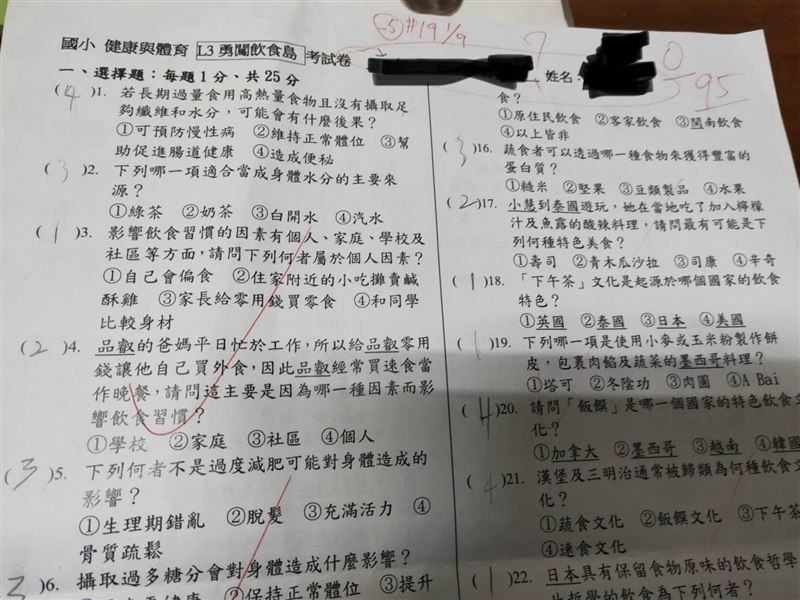 國小 健康與體育 L3 勇闖飲食島 考試卷
-5 #19 1/9
姓名:
95
一、選擇題:每題1分、共25分
(4)1. 若長期過量食用高熱量食物且沒有攝取足
夠纖維和水分,可能會有什麼後果?
①可預防慢性病 ②維持正常體位 ③幫
助促進腸道健康 ④造成便秘
(3)2. 下列哪一項適合當成身體水分的主要來
源?
①綠茶 ②奶茶 ③白開水 ④汽水
(1)3. 影響飲食習慣的因素有個人、家庭、學校及
社區等方面,請問下列何者屬於個人因素?
①自己會偏食 ②住家附近的小吃攤賣鹹
酥雞 ③家長給零用錢買零食 ④和同學
比較身材
(2)4. 品叡的爸媽平日忙於工作,所以給品叡零用
錢讓他自己買外食,因此品叡經常買速食當
作晚餐,請問這主要是因為哪一種因素而影
響飲食習慣?
①學校 ②家庭 ③社區 ④個人
(3)5. 下列何者不是過度減肥可能對身體造成的
影響?
①生理期錯亂 ②脫髮 ③充滿活力 ④
骨質疏鬆
(3)6. 攝取過多糖分會對身體造成什麼影響?
②保持正常體位 ③提升
食?
①原住民飲食 ②客家飲食 ③閩南飲食
④以上皆非
(3)16. 蔬食者可以透過哪一種食物來獲得豐富的
蛋白質?
①糙米 ②堅果 ③豆類製品 ④水果
(2)17. 小慧到泰國遊玩,她在當地吃了加入檸檬
汁及魚露的酸辣料理,請問最有可能是下
列何種特色美食?
①壽司 ②青木瓜沙拉 ③司康 ④辛奇
(1)18. 「下午茶」文化是起源於哪個國家的飲食
特色?
①英國 ②泰國 ③日本 ④美國
(1)19. 下列哪一項是使用小麥或玉米粉製作餅
皮,包裹肉餡及蔬菜的墨西哥料理?
①塔可 ②冬陰功 ③肉圓 ④A Bai
(4)20. 請問「飯饌」是哪一個國家的特色飲食文
化?
①加拿大 ②墨西哥 ③越南 ④韓國
(4)21. 漢堡及三明治通常被歸類為何種飲食文
化?
①蔬食文化 ②飯饌文化 ③下午茶
④速食文化
(1)22. 日本具有保留食物原味的飲食哲學
此哲學的飲食為下列何者?